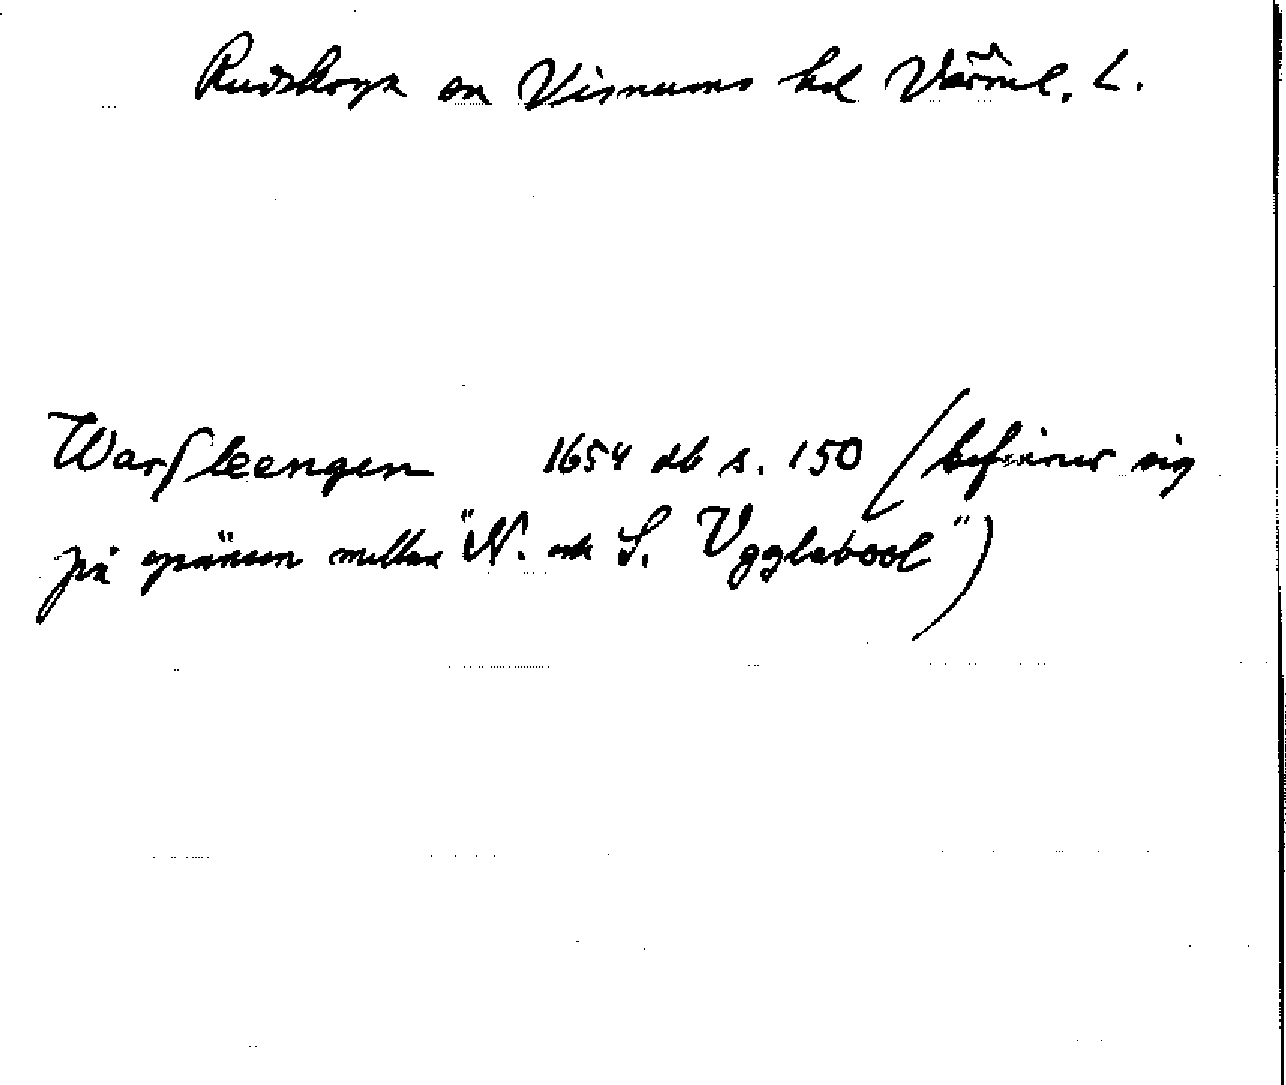 Rudskoga sn Visnums hd Värml. L.
Warſleengen 1654 db s. 150 (befinner sig
på gränsen mellan "N. och S. Ugglebool")